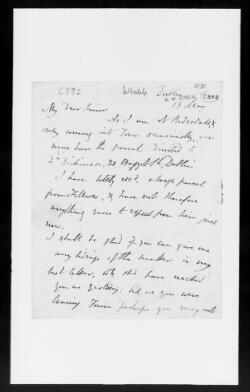 L592
Whately
Dublin
1838
19 May
My dear Senior
As I am at Redesdale &
only coming into Town occasionally, you
may have the parcel directed to
Dr Dickinson, 22 Baggot St Dublin
I have lately recd. a large parcel
from Fellowes, & have not therefore
anything more to expect from him just
now.
I shall be glad if you can give me
any tidings of the matter in my
last letter, wh shd have reached
you on yesterday: but as you were
leaving Town perhaps you may not